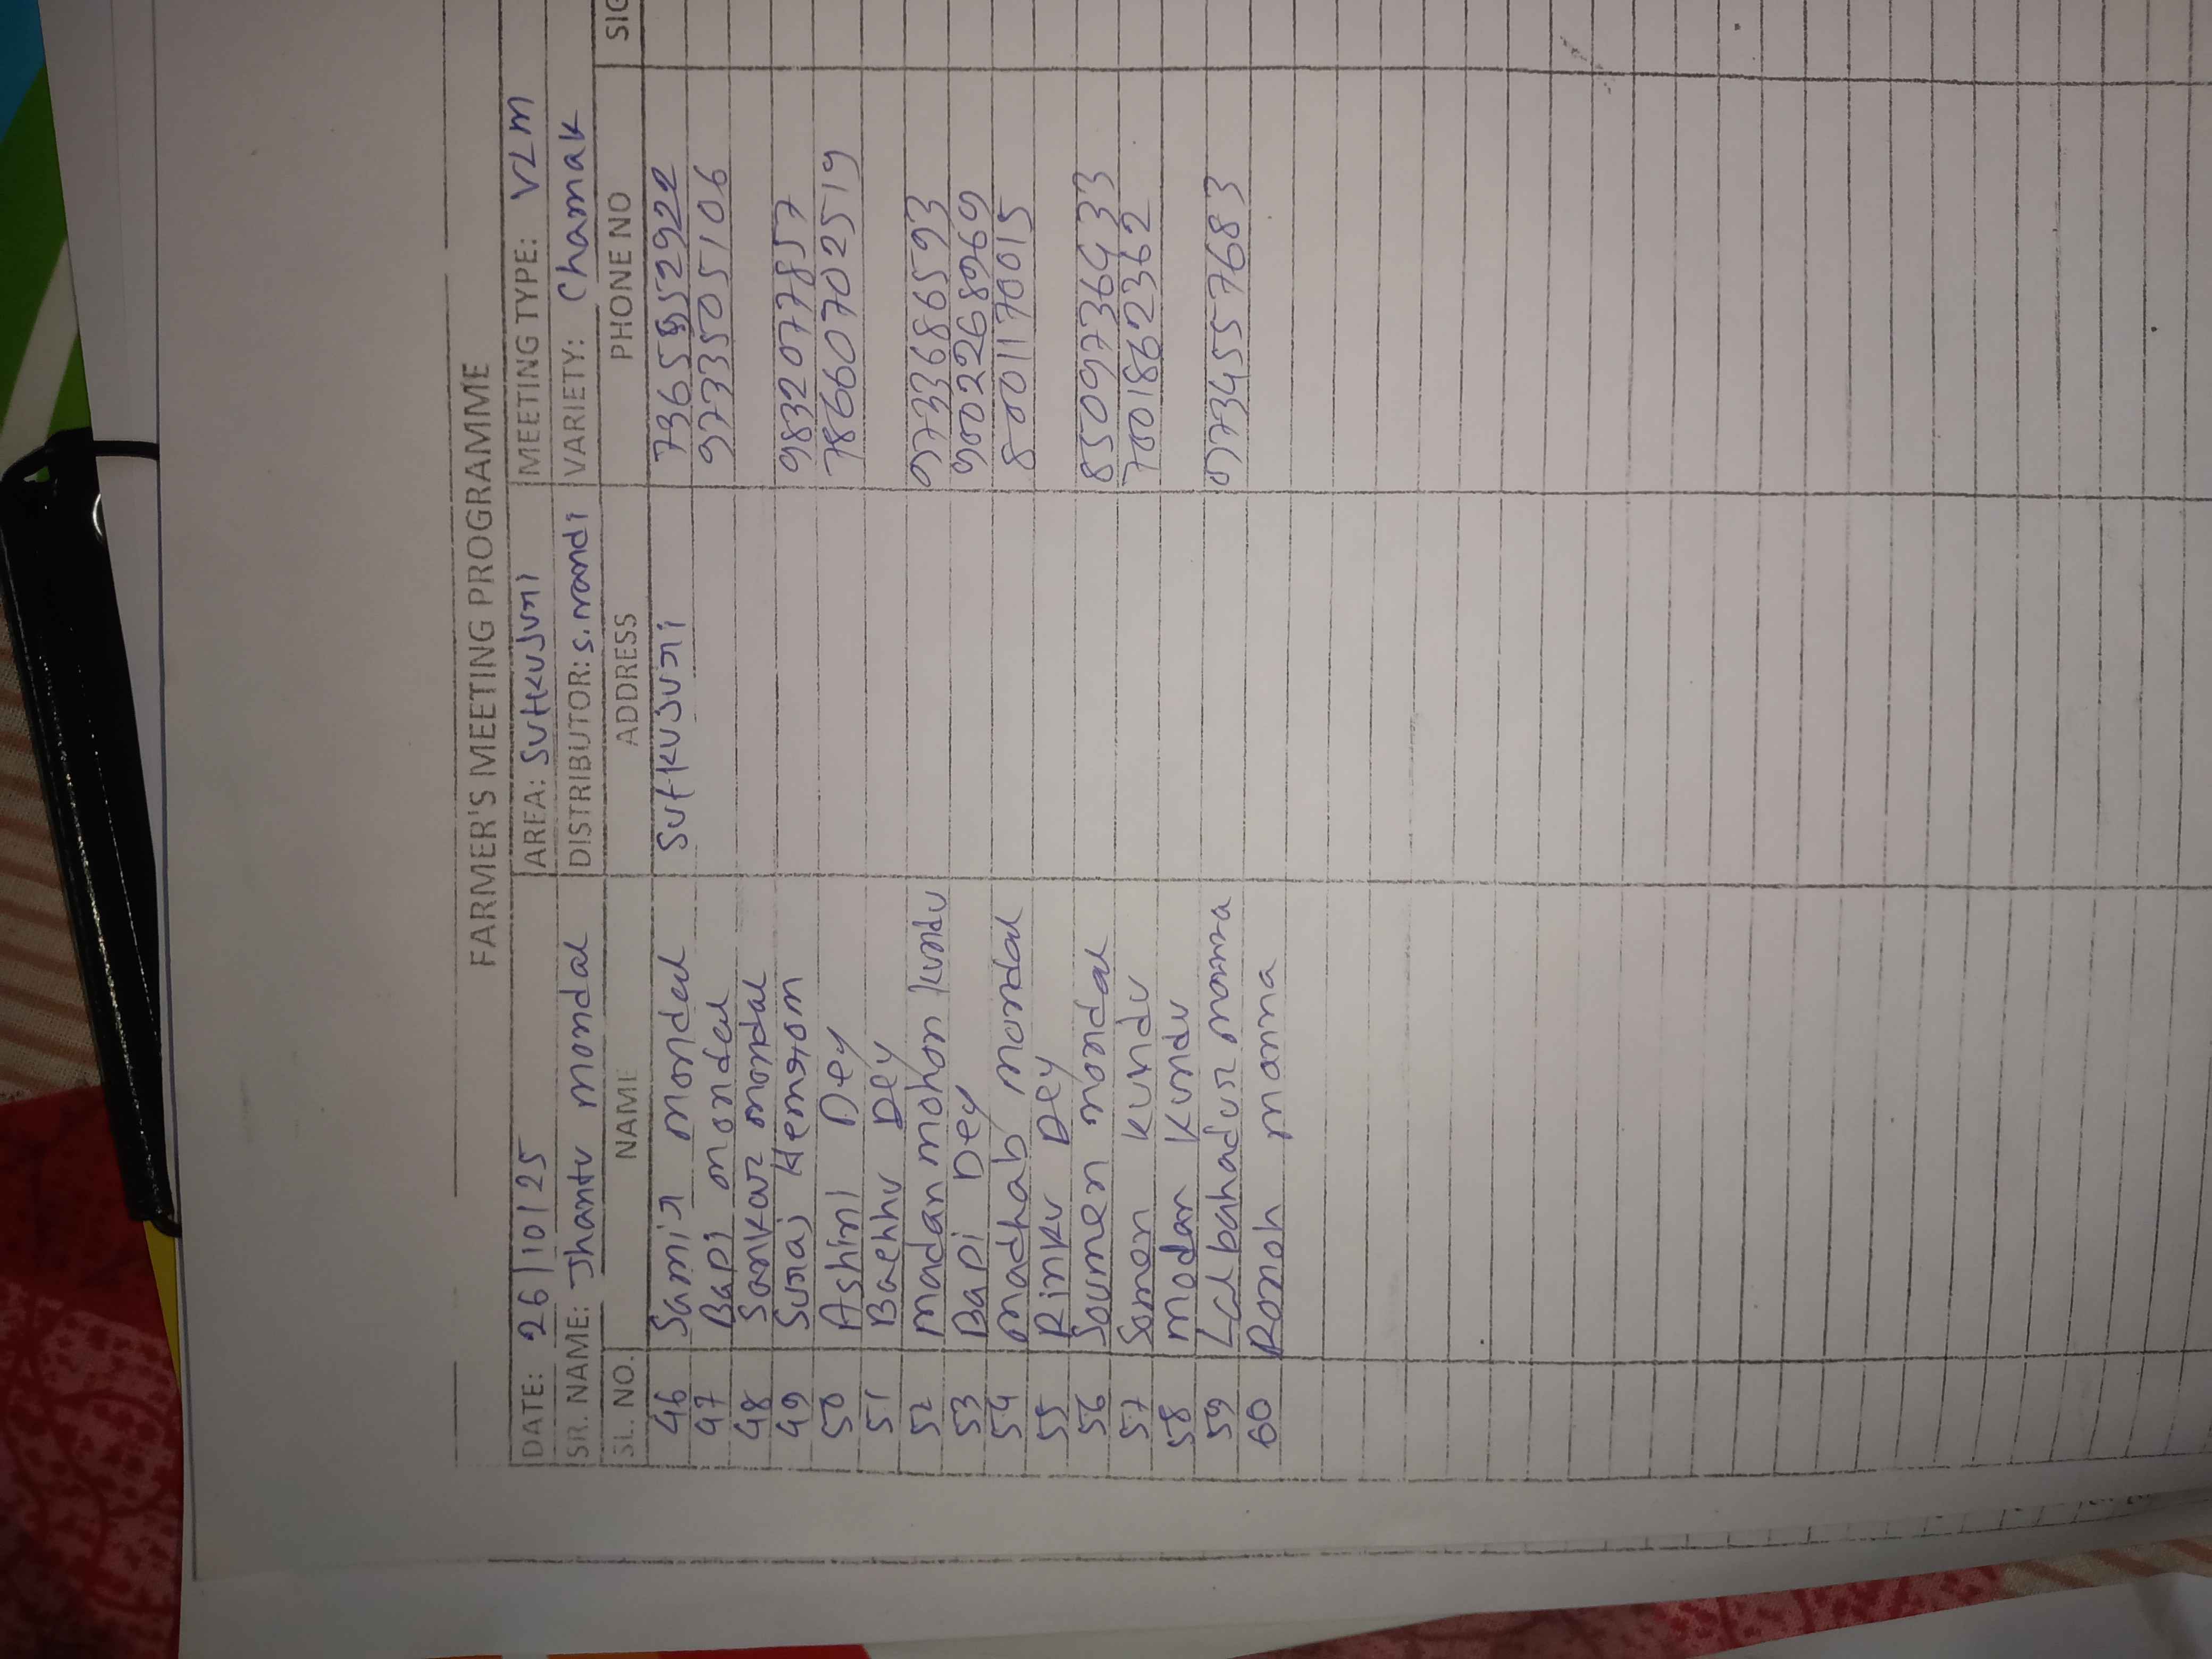 FARMER'S MEETING PROGRAMME
DATE: 26/10/25 AREA: Sutkujuri MEETING TYPE: VLM
SR. NAME: Jhantu mondal DISTRIBUTOR: S. nandi VARIETY: Chamak
SL. NO. NAME ADDRESS PHONE NO SIG
46 Samir mondal Sutkujuri 7365952922
47 Bapi mondal 9733505106
48 Sankar mondal
49 Suraj Hemrom 9832077857
50 Ashini Dey 78660702519
51 Bachhu Dey
52 Madan mohon kundu 9733686593
53 Bapi Dey 9002268969
54 Madhab mondal 8001170015
55 Rinku Dey
56 Soumen mondal 8509736433
57 Somen kundu 7001862362
58 Modan Kundu
59 Lal bahadur manna 9734557683
60 Romoh manna